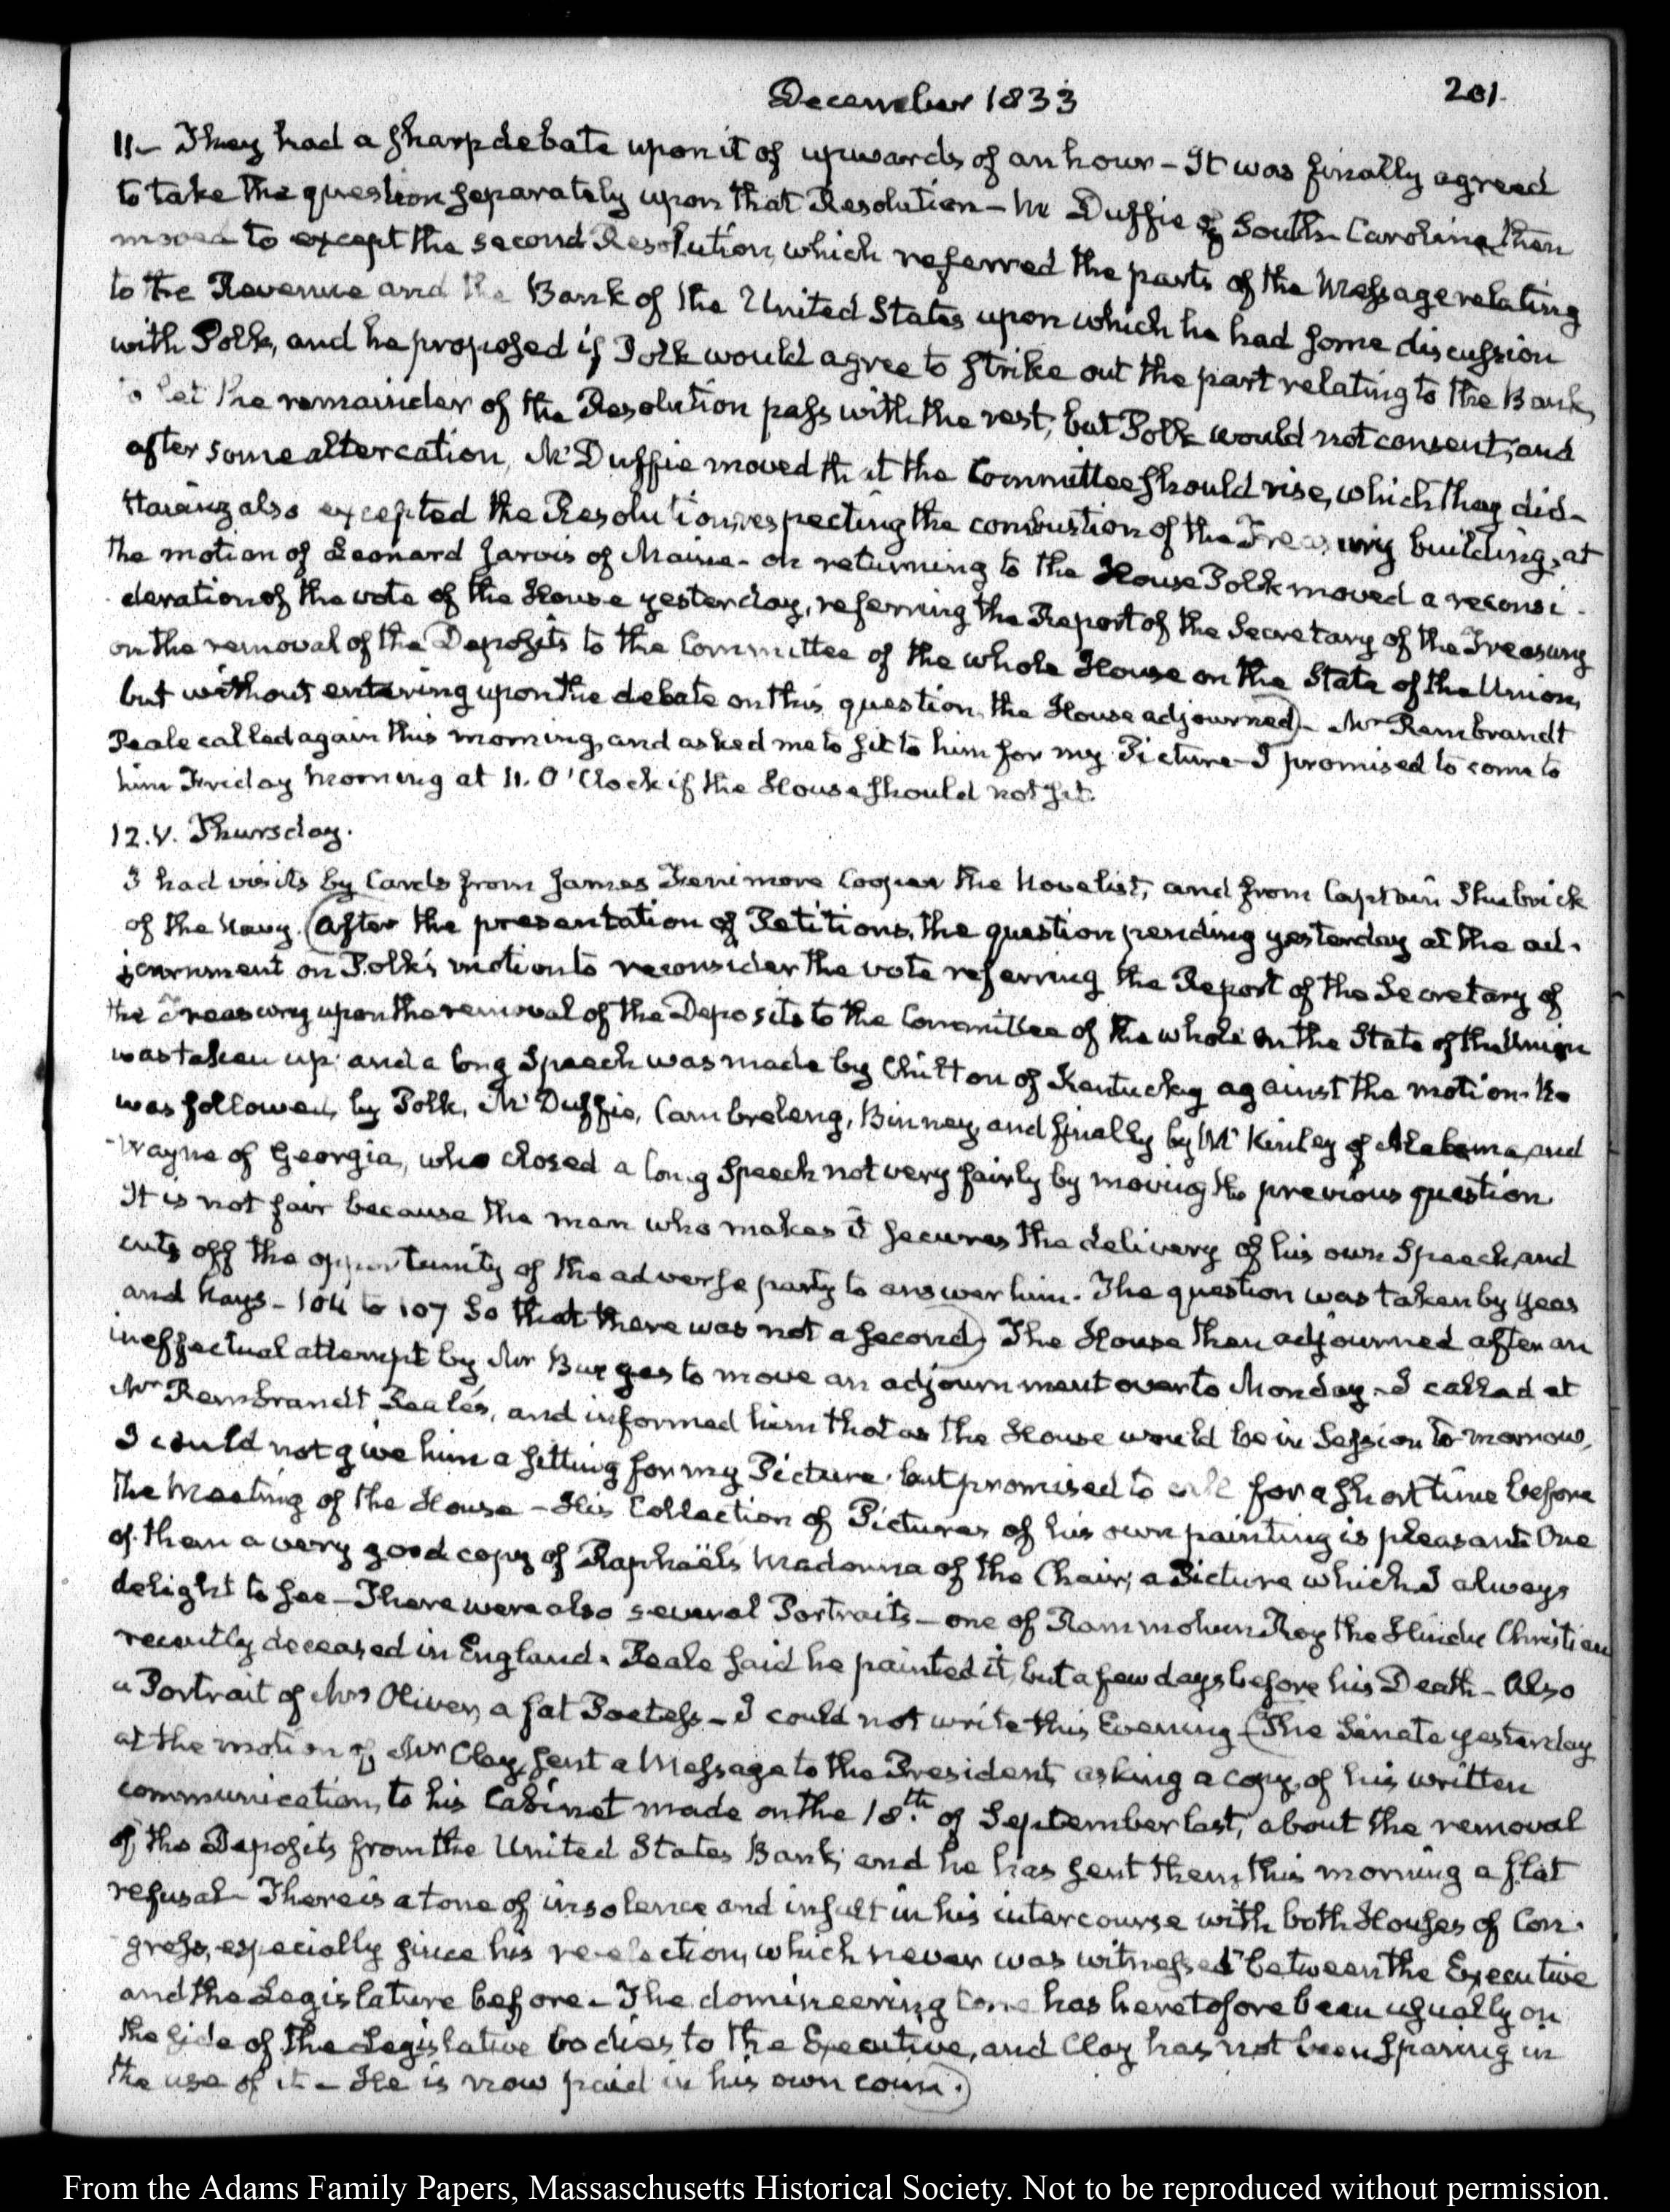 December 1833
201.
11- They had a sharp debate upon it of upwards of an hour - It was finally agreed
to take the question separately upon that Resolution - Mc Duffie of South-Carolina then
moved to except the second Resolution, which referred the parts of the Message relating
to the Revenue and the Bank of the United States upon which he had some discussion
with Polk, and he proposed if Polk would agree to strike out the part relating to the Bank,
to let the remainder of the Resolution pass with the rest; but Polk would not consent; and
after some altercation, McDuffie moved that the Committee should rise, which they did-
Having also excepted the Resolution, respecting the combustion of the Treasury building, at
the motion of Leonard Jarvis of Maine - on returning to the House Polk moved a reconsi-
deration of the vote of the House yesterday, referring the Report of the Secretary of the Treasury
on the removal of the Deposits to the Committee of the whole House on the State of the Union,
but without entering upon the debate on this question, the House adjourned) - Mr Rembrandt
Peale called again this morning, and asked me to sit to him for my Picture - I promised to come to
him Friday Morning at 11. O'Clock if the House should not sit.
12. V. Thursday.
I had visits by Cards from James Fenimore Cooper the Novelist, and from Captain Shubrick
of the Navy. (After the presentation of Petitions, the question pending yesterday at the ad-
journment on Polk's motion to reconsider the vote referring the Report of the Secretary of
the Treasury upon the removal of the Deposits to the Committee of the whole on the State of the Union
was taken up: and a long Speech was made by Chilton of Kentucky against the motion. He
was followed by Polk, McDuffie, Cambreleng, Binney, and finally by McKinley of Alabama, and
Wayne of Georgia, who closed a long Speech not very fairly by moving the previous question.
It is not fair because the man who makes it secures the delivery of his own Speech, and
cuts off the opportunity of the adverse party to answer him. The question was taken by yeas
and Nays - 104 to 107 So that there was not a second) The House then adjourned after an
ineffectual attempt by Mr Burges to move an adjournment over to Monday - I called at
Mr Rembrandt Peale's, and informed him that as the House would be in Session to-morrow,
I could not give him a sitting for my Picture. but promised to call for a short time before
the Meeting of the House - His Collection of Pictures of his own painting is pleasant. One
of them a very good copy of Raphaël's Madonna of the Chair; a Picture which I always
delight to see - There were also several Portraits - one of Rammohun Roy the Hindu Christian
recently deceased in England. Peale said he painted it, but a few days before his Death - Also
a Portrait of Mrs Oliver, a fat Poetess - I could not write this Evening - (The Senate yesterday
at the motion of Mr Clay, sent a Message to the President, asking a copy, of his written
communication, to his Cabinet made on the 18th. of September last, about the removal
of the Deposits from the United States Bank; and he has sent them this morning a flat
refusal - There is a tone of insolence and insult in his intercourse with both Houses of Con-
gress, especially since his re-election, which never was witnessed between the Executive
and the Legislature before - The domineering tone has heretofore been usually on
the side of the Legislative bodies to the Executive, and Clay has not been sparing in
the use of it - He is now paid in his own coin.)
From the Adams Family Papers, Massachusetts Historical Society. Not to be reproduced without permission.